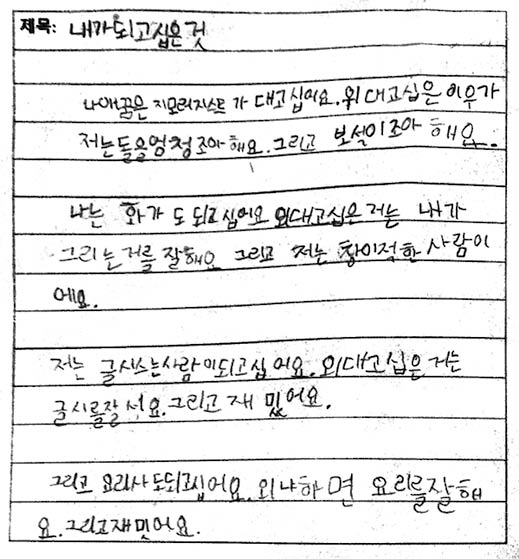 제목: 내가 되고십은 것
나애꿈은 지모러지스트가 대고십어요. 위대고십은 이우가
저는 돌을엄청조아해요. 그리고 보설이조아해요.
나는 화가도되고십어요 외대고십은거는 내가
그리는거를잘해요 그리고 저는 창이적한사람이
에요.
저는 글시스는사람이되고십어요. 외대고십은거는
글시를잘서요. 그리고 재밌어요.
그리고 요리사도되고십어요. 외냐하면 요리를잘해
요. 그리고재밋어요.